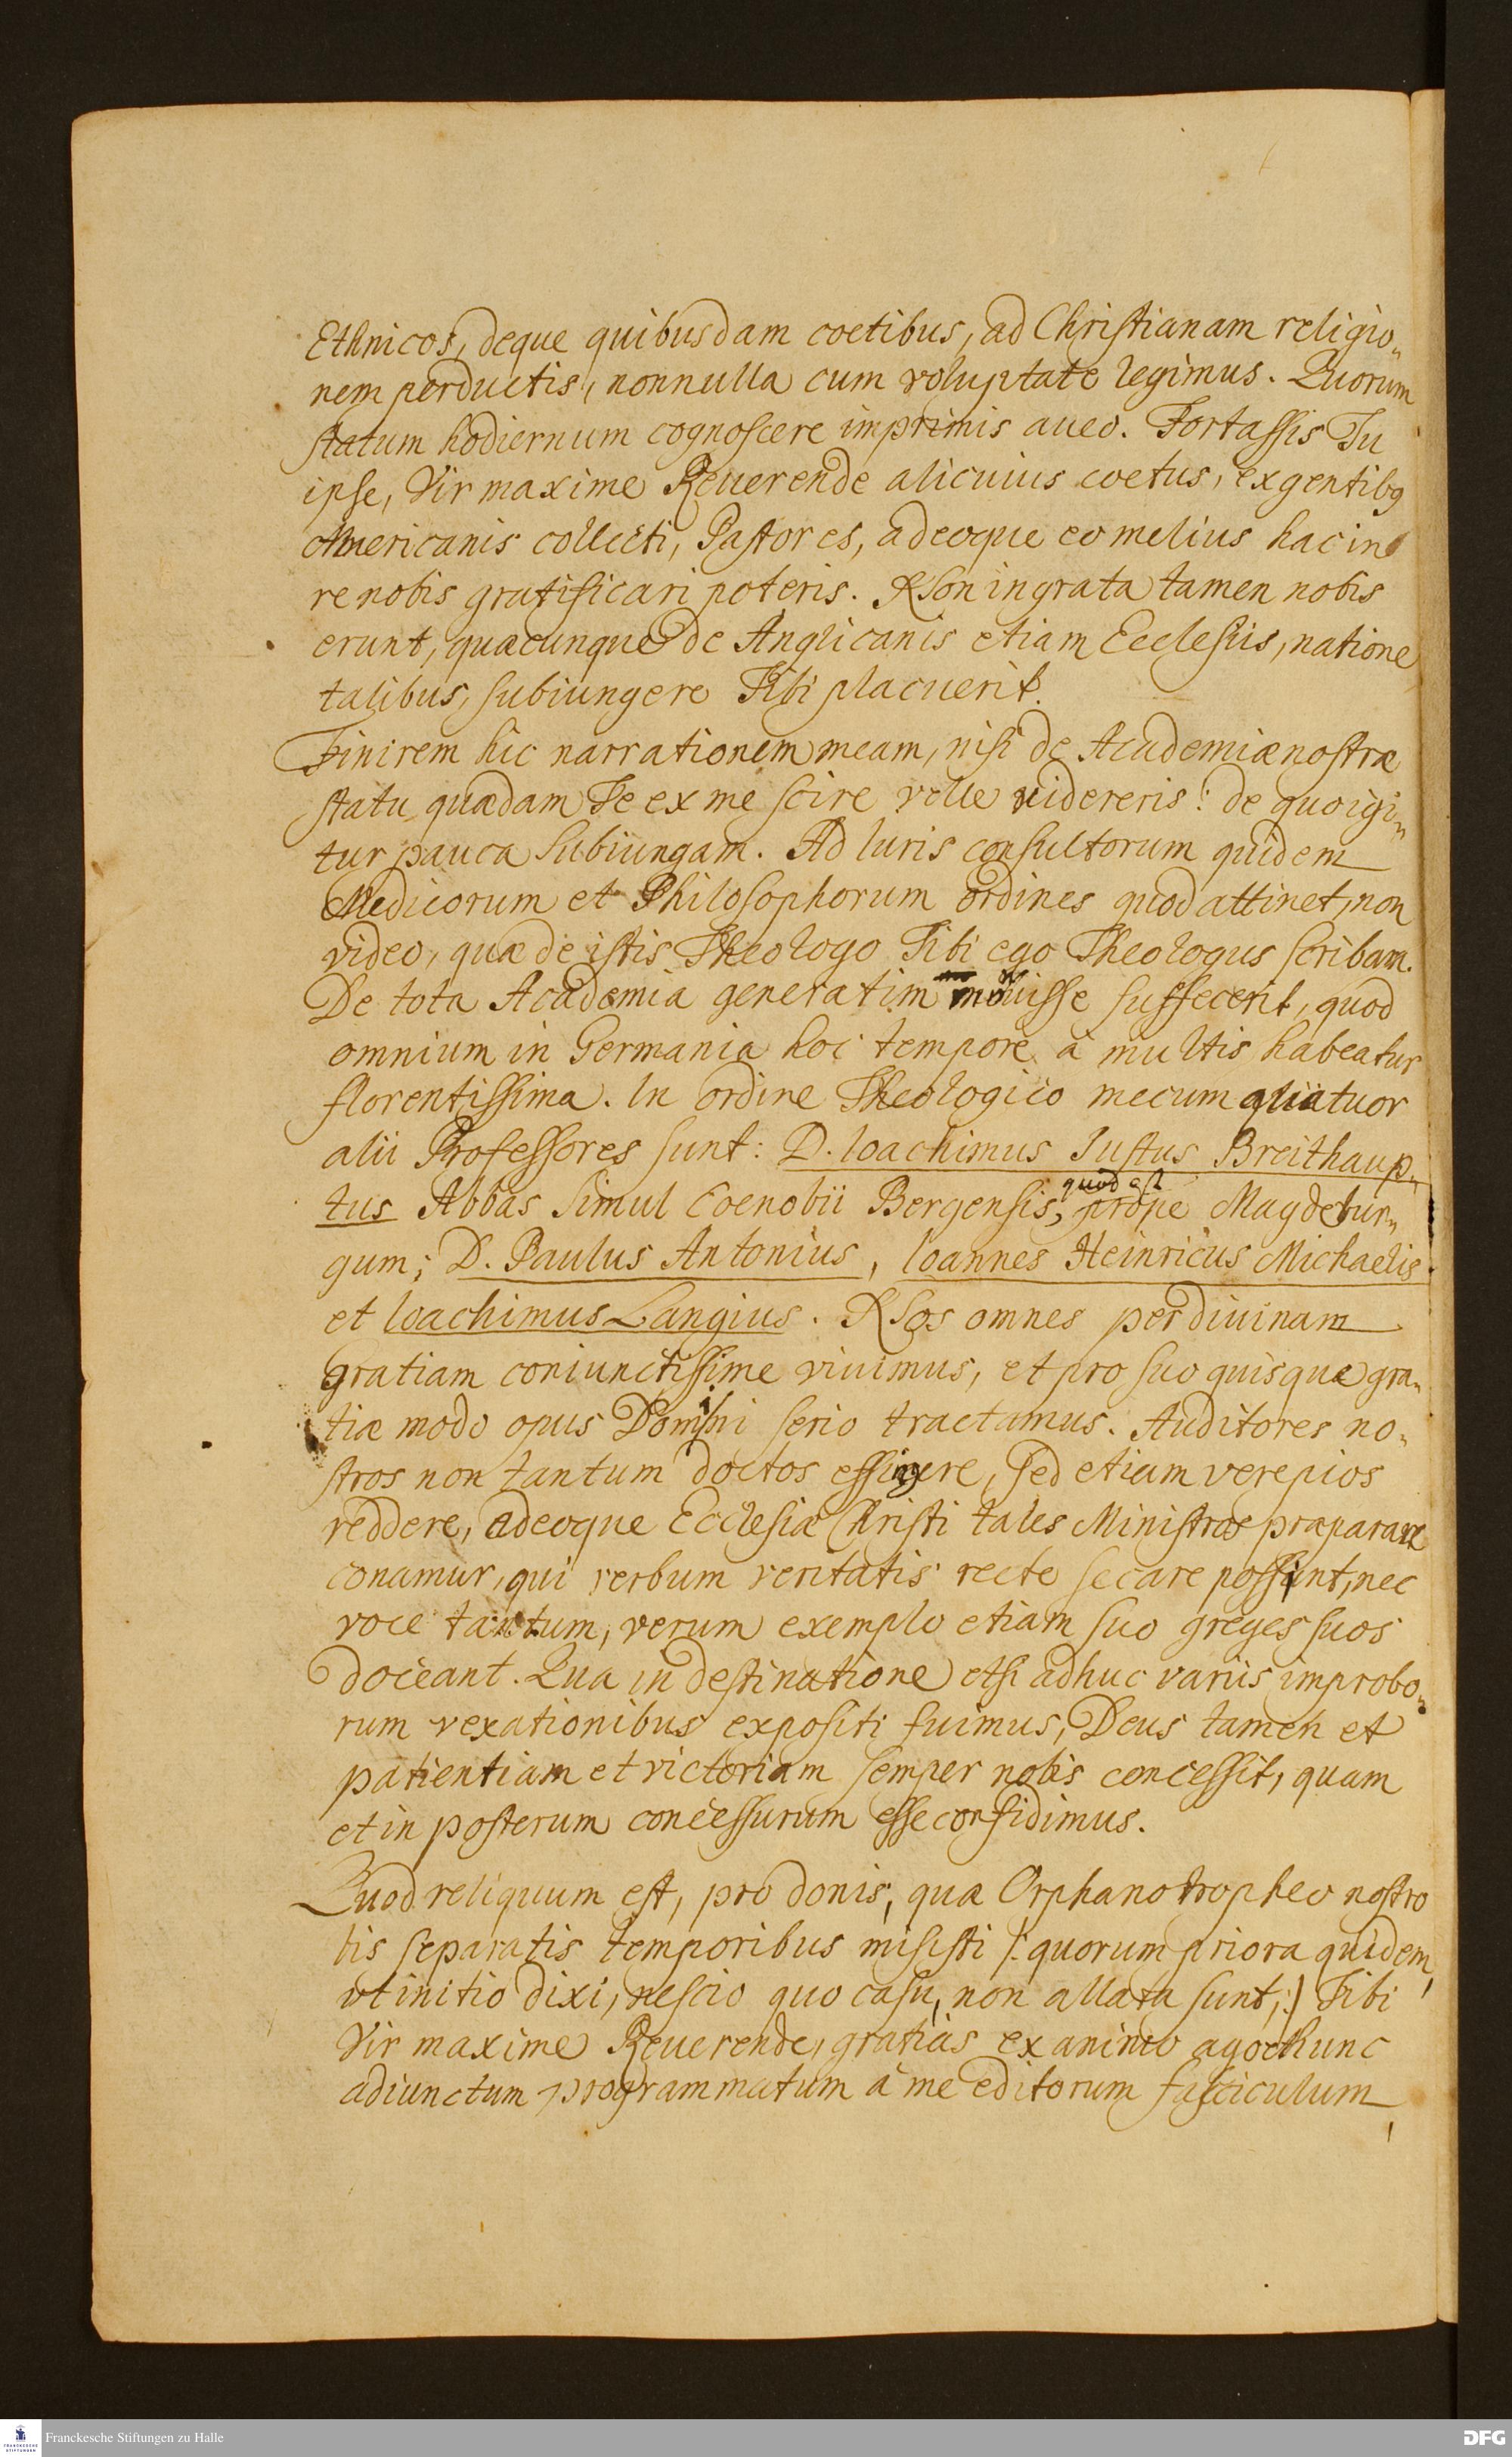 Ethnicos, deque quibusdam coetibus, ad Christianam religio„
nem perductis, nonnulla cum voluptate legimus. Quorum
statum hodiernum cognoscere imprimis aueo. Fortassis Tu
ipse, Vir maxime Reuerende alicuius coetus, ex gentibꝰ
Americanis collecti, Pastor es, adeoque eo melius hac in
re nobis gratificari poteris. Non ingrata tamen nobis
erunt, quaecunque de Anglicanis etiam Ecclesiis, natione
talibus, subiungere Tibi placuerit.
Finirem hic narrationem meam, nisi de Academiæ nostræ
statu quædam Te ex me scire velle videreris: de quo igi„
tur pauca subiungam. Ad Iuris consultorum quidem
Medicorum et Philosophorum ordines quod attinet, non
video, quæ de istis Theologo Tibi ego Theologus scribam.
De tota Academia generatim nouisse suffecerit, quod
omnium in Germania hoc tempore à multis habeatur
florentissima. In ordine Theologico mecum quatuor
alii Professores sunt: D. Ioachimus Iustus Breithaup„
tus Abbas simul Coenobii Bergensis, quod est prope Magdebur„
gum; D. Paulus Antonius, Ioannes Heinricus Michaelis
et Ioachimus Langius. Nos omnes per diuinam
gratiam coniunctissime viuimus, et pro suo quisque gra„
tiæ modo opus Domini serio tractamus. Auditores no„
stros non tantum doctos effingere, sed etiam vere pios
reddere, adeoque Ecclesiæ Christi tales Ministros præparare
conamur, qui verbum veritatis recte secare possint, nec
voce tantum, verum exemplo etiam suo greges suos
doceant. Qua in destinatione etsi adhuc variis improbo„
rum vexationibus expositi fuimus, Deus tamen et
patientiam et victoriam semper nobis concessit, quam
et in posterum concessurum esse confidimus.
Quod reliquum est, pro donis, quæ Orphanotropheo nostro
bis separatis temporibus misisti /: quorum priora quidem,
vt initio dixi, nescio quo casu, non allata sunt, :/ Tibi
Vir maxime Reuerende, gratias ex animo ago et hunc
adiunctum programmatum à me editorum fasciculum
Franckesche Stiftungen zu Halle
DFG